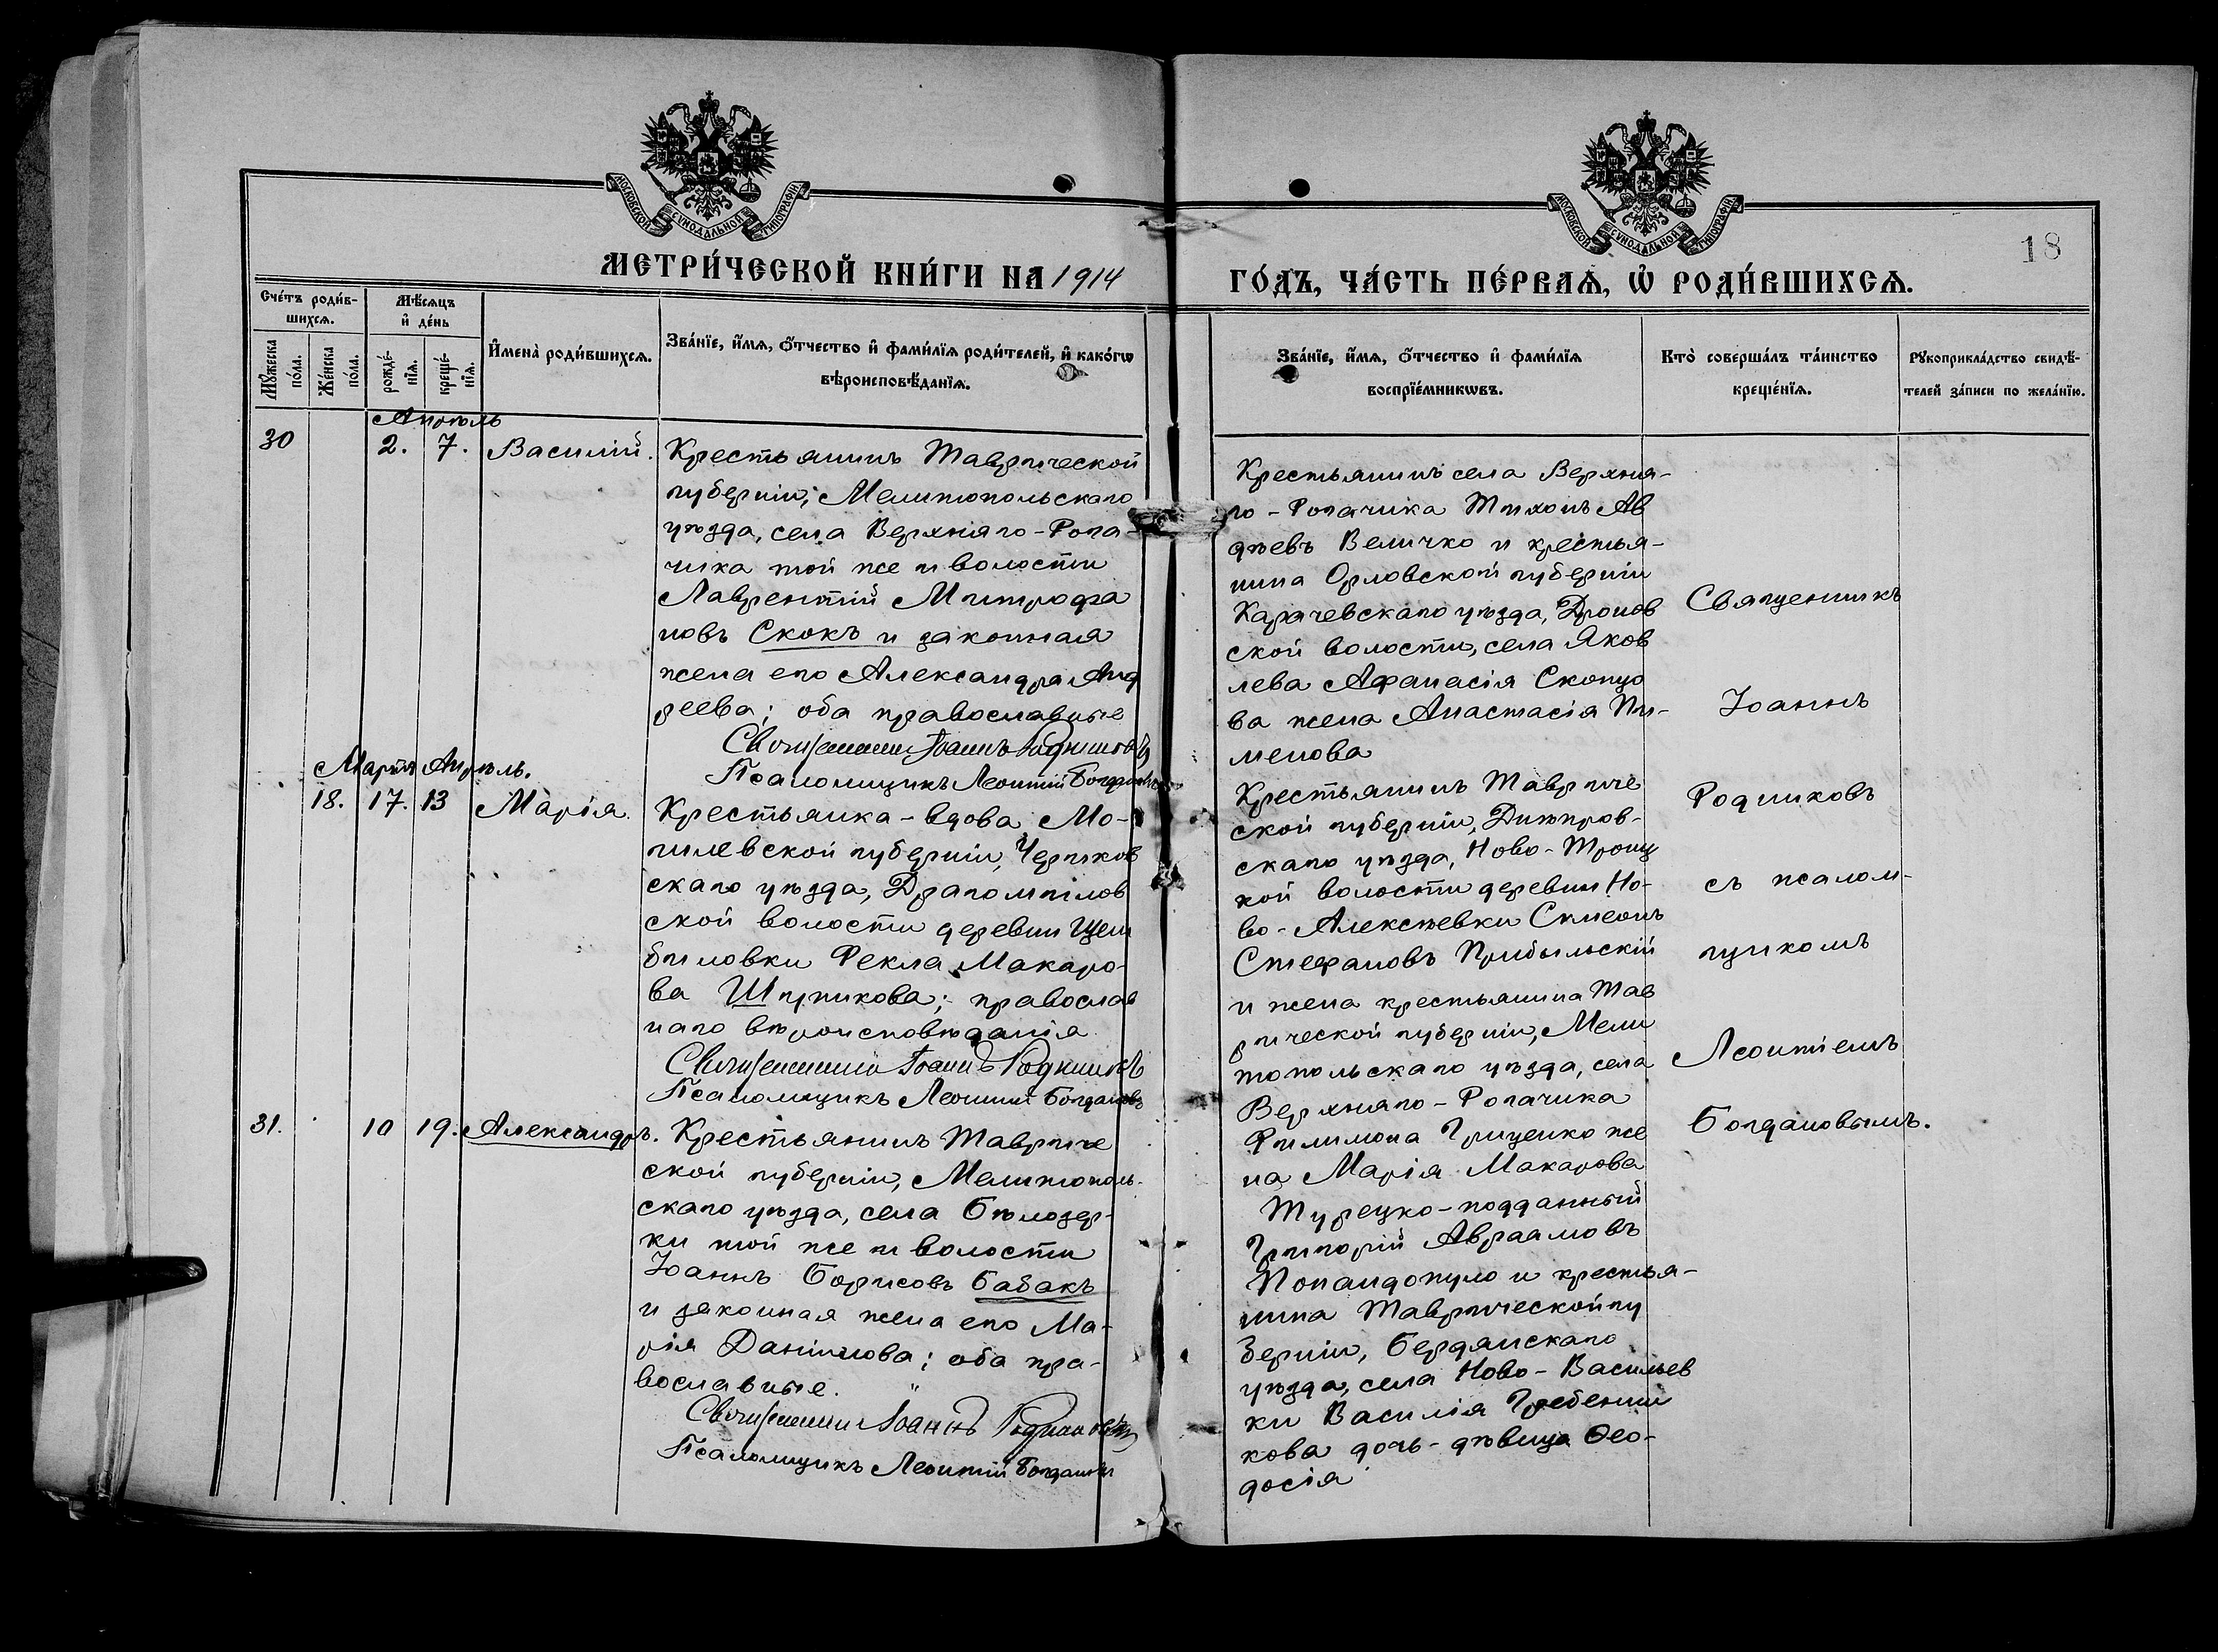 МОСКОВСКОЙ СѴНОДАЛЬНОЙ ТИПОГРАФІИ
МОСКОВСКОЙ СѴНОДАЛЬНОЙ ТИПОГРАФІИ
18
МЕТРИ́ЧЕСКОЙ КНИ́ГИ НА 1914
ГО́ДЪ, ЧА́СТЬ ПЕ́РВАѦ, Ѡ РОДИ́ВШИХСѦ.
Сче́тъ роди́в-
шихсѧ.
Мꙋ́жеска по́ла.
Же́нска по́ла.
Мѣ́сѧцъ
и҆ де́нь
рожде́-
нїѧ.
креще́-
нїѧ.
И҆мена̀ роди́вшихсѧ.
Зва́нїе, и҆́мѧ, ѻ҆́тчество и҆ фами́лїѧ роди́телей, и҆ како́гѡ
вѣроисповѣ́данїѧ.
Зва́нїе, и҆́мѧ, ѻ҆́тчество и҆ фами́лїѧ
воспрїе́мникѡвъ.
Кто̀ соверша́лъ та́инство
креще́нїѧ.
Рꙋкоприкла́дство свидѣ́-
телей за́писи по жела́нїю.
Апрѣль
30 2. 7. Василій.
Крестьянинъ Таврической
губерніи, Мелитопольскаго
уѣзда, села Верхняго-Рога-
чика той же и волости
Лаврентій Митрофа
новъ Скокъ и законная
жена его Александра Анд
реева; оба православные
Священникъ Іоаннъ Родниковъ
Псаломщикъ Леонтій Богдановъ
Крестьянинъ села Верхня-
го-Рогачика Тихонъ Ав
дѣевъ Величко и крестья-
нина Орловской губерніи
Карачевскаго уѣзда, Дронов
ской волости, села Яков
лева Афанасія Скопцо
ва жена Анастасія Пи-
менова
Мартъ Апрѣль.
18. 17. 13 Марія.
Крестьянка-вдова Мо-
гилевской губерніи, Чериков
скаго уѣзда, Драгомпілов
ской волости деревни Щем
биловки Фекла Макаро-
ва Шпупикова; православ
наго вѣроисповѣданія
Священникъ Іоаннъ Родниковъ
Псаломщикъ Леонтій Богдановъ
Крестьянинъ Тавриче
ской губерніи, Днѣпров-
скаго уѣзда, Ново-Троиц
кой волости деревни Но-
во-Алексѣевки Симеонъ
Стефановъ Прибыльскій
и жена крестьянина Тав
рической губерніи, Мели
топольскаго уѣзда, села
Верхняго-Рогачика
Филимона Гриценко же
на Марія Макарова
31. 10 19. Александръ.
Крестьянинъ Тавриче
ской губерніи, Мелитополь-
скаго уѣзда, села Бѣлозер-
ки той же и волости
Іоаннъ Борисовъ Бабакъ
и законная жена его Ма-
рія Даніилова; оба пра-
вославные.
Священникъ Іоаннъ Родниковъ
Псаломщикъ Леонтій Богдановъ
Турецко-подданный
Григорій Авраамовъ
Попандопуло и крестья-
нина Таврической гу
берніи, Бердянскаго
уѣзда, села Ново-Васильев
ки Василія Гребенни
кова дочь-дѣвица Ѳео-
досія
Священникъ
Іоаннъ
Родниковъ
съ псалом-
щикомъ
Леонтіемъ
Богдановымъ.